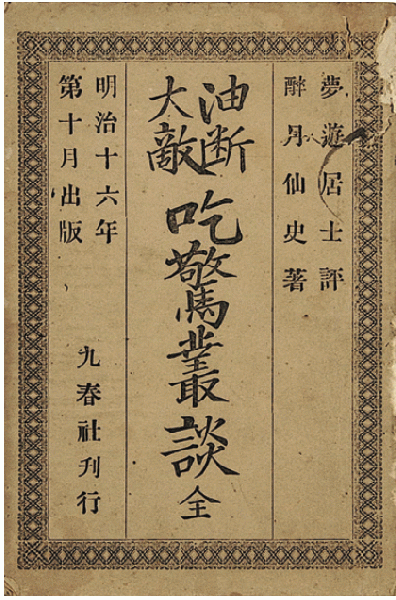 夢遊居士評
醉月仙史著
油断
大敵
吃驚叢談 全
明治十六年
第十月出版
九春社刊行